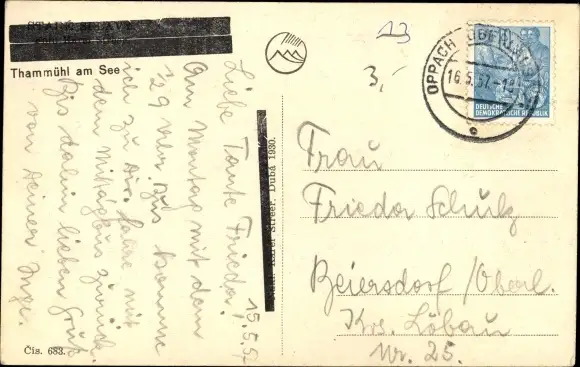 Thammühl am See
15.5.57
Liebe Tante Frieder!
Am Montag mit dem
1/29 Uhr Zug komme
ich zu Dir. Fahre mit
dem Mittagbus zurück.
Bis dahin lieben Gruß
von Deiner Inge.
Čis. 683.
Streer, Dubá 1930.
23
3,-
OPPACH (OBERLAUS)
16.5.57.-18
DEUTSCHE
DEMOKRATISCHE REPUBLIK
Frau
Frieder Schulz
Beiersdorf /Oberl.
Krs. Löbau
Nr. 25.